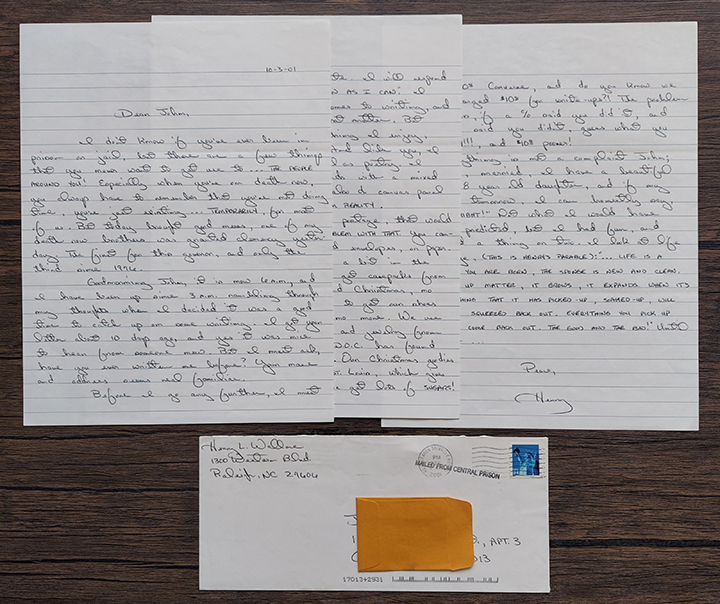 10-3-01
Dear John,
I don't know if you've ever been in
prison or jail, but there are a few things
that you never want to get use to... THE PEOPLE
AROUND YOU! Especially when you're on death row,
you always have to remember that you're not doing
time, you're just visiting... TEMPORARILY, for most
of us. But today brought good news, one of my
death row brothers was granted clemency yester-
day. The first for this governor, and only the
third since 1976.
Goodmorning John, it is now 6 A.M., and
I have been up since 3 A.M. rambling through
my thoughts when I decided it was a good
time to catch up on some writing. I got your
letter about 10 days ago, and yes it was nice
to hear from someone new. But I must ask,
have you ever written me before? Your name
and address seems real familiar.
Before I go any further, I must
I will respond
AS I CAN! I
comes to writing, and
But
I enjoy,
like you, I
with a mixed
canvas panel
A BEAUTY.
postage, that would
PROBLEM WITH THAT. You can-
envelopes, or paper.
a lot in the
get care pkgs from
Christmas, no
to get our shoes
no more. We use
and yearly from
D.O.C. has found
Our Christmas goodies
St. Louis, which gives
got lots of SUGARS!
Converse, and do you know we
charged $10 for write-ups?! The problem
is, if a % said you did it, and
said you didn't, guess what you
!!!!, and $10 poorer!
is not a complaint John;
married, I have a beautiful
8 year old daughter, and if my
tomorrow, I can honestly say
THAT! Not what I would have
predicted, but I had fun, and
thing or two. I look at life
(THIS IS HENRY'S PARABLE): "... LIFE IS A
YOU ARE BORN, THE SPONGE IS NEW AND CLEAN.
UP MATTER, IT GROWS, IT EXPANDS WHEN ITS
THING THAT IT HAS PICKED-UP, SOAKED-UP, WILL
SQUEEZED BACK OUT. EVERYTHING YOU PICK UP
COME BACK OUT. THE GOOD AND THE BAD!" Until
....
Peace,
Henry
Henry L. Wallace
1300 Western Blvd.
Raleigh, NC 27606
MAILED FROM CENTRAL PRISON
J
1
, APT. 3
C
013
17013+2931